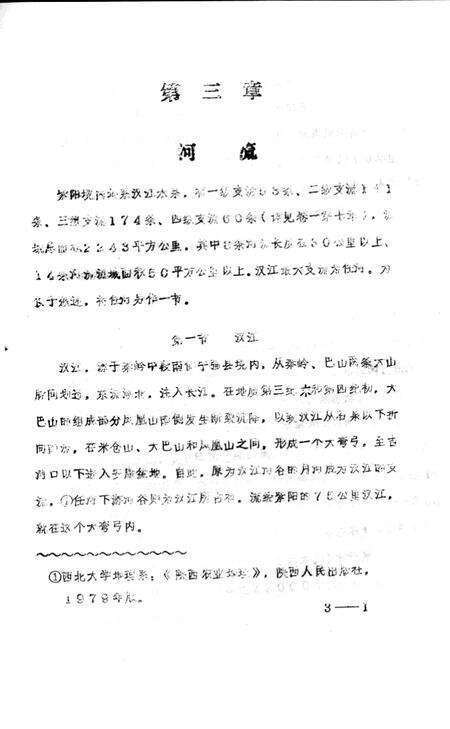 第三章
河流
紫阳境内河系汉江水系,有一级支流63条、二级支流141
条、三级支流174条、四级支流60条(详见卷一第十年),流
域总面积2243平方公里,其中8条河流长度在30公里以上、
14条河流流域面积50平方公里以上。汉江最大支流为任河。为
便于叙述,将任河另作一节。
第一节 汉江
汉江,源于秦岭中段南侧宁强县境内,从秦岭、巴山两条大山
之间,东流湖北,注入长江。在地质第三纪末和第四纪初,大
巴山的组成部分凤凰山南侧发生断裂沉降,以致汉江从石泉以下折
向,在米仓山、大巴山和凤凰山之间,形成一个大弯弓,至吉
河口以下进入安康盆地。自此,原为汉江河谷的月河成为汉江的支
流,①任河下游河谷则为汉江所占有。流经紫阳的75公里汉江,
就在这个大弯弓内。
①西北大学地理系:《陕西农业地理》,陕西人民出版社,
1979年版。
3—1